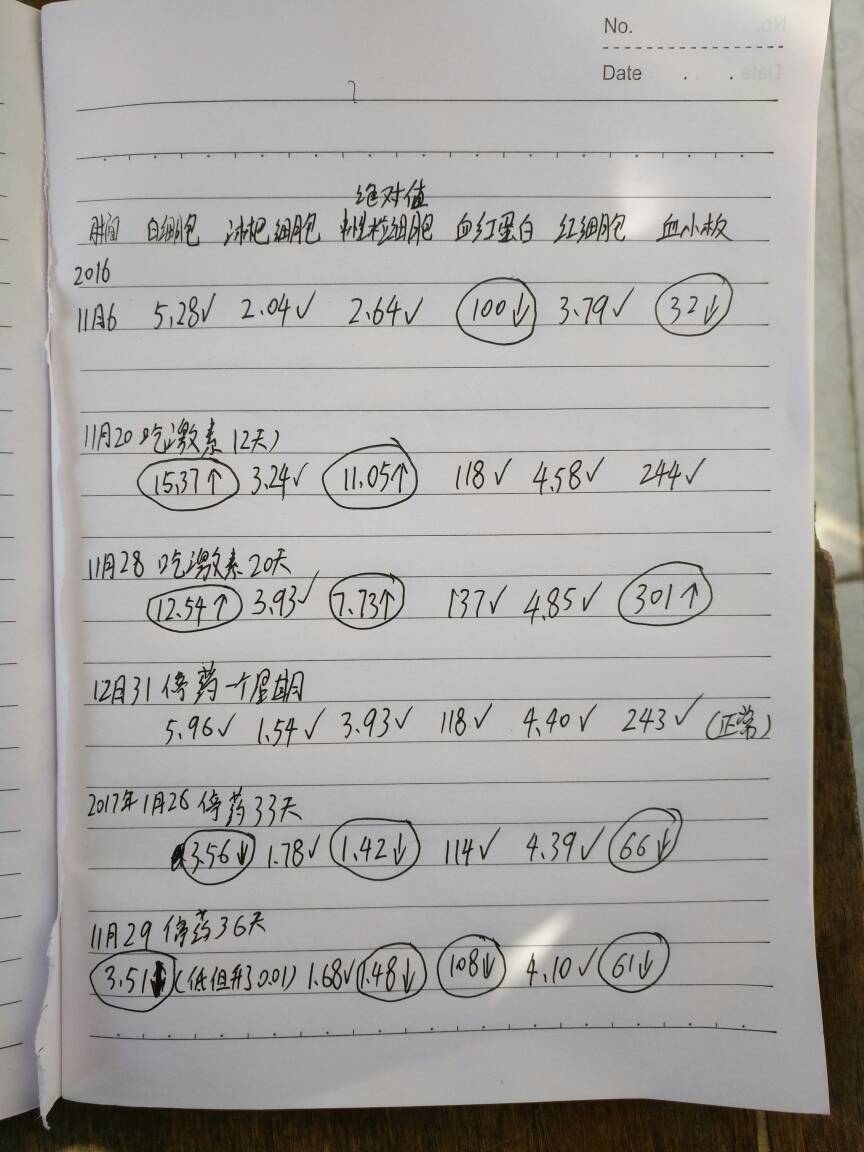 No.
Date . .
绝对值
时间 白细胞 淋粑细胞 中性粒细胞 血红蛋白 红细胞 血小板
2016
11月6 5.28√ 2.04√ 2.64√ 100↓ 3.79√ 32↓
11月20 吃激素12天)
15.37↑ 3.24√ 11.05↑ 118√ 4.58√ 244√
11月28 吃激素20天
12.54↑ 3.93√ 7.73↑ 137√ 4.85√ 301↑
12月31 停药一个星期
5.96√ 1.54√ 3.93√ 118√ 4.40√ 243√ (正常)
2017年1月26 停药33天
3.56↓ 1.78√ 1.42↓ 114√ 4.39√ 66↓
11月29 停药36天
3.51↓ (低但升了0.01) 1.68√ 1.48↓ 108↓ 4.10√ 61↓